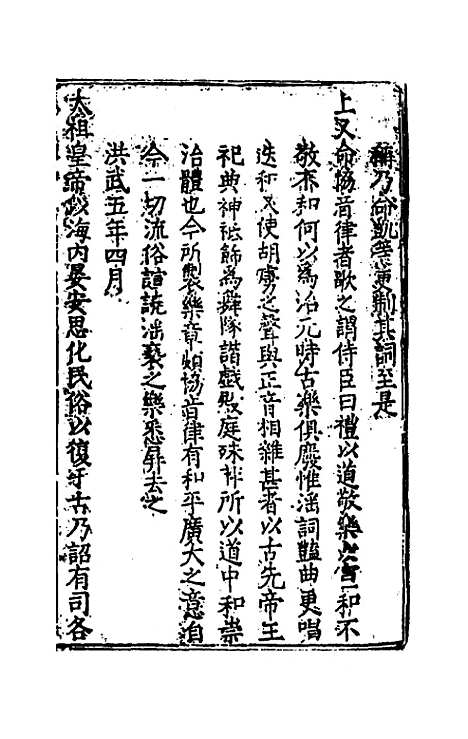 稱乃命凱等更制其詞至是
上又命協音律者歌之謂侍臣曰禮以道敬樂以宣和不
敬不和何以為治元時古樂俱廢惟滛詞豔曲更唱
迭和又使胡虜之聲與正音相雜甚者以古先帝王
祀典神祗飾為舞隊諧戲殿庭殊非所以道中和崇
治體也今所製樂章頗協音律有和平廣大之意自
今一切流俗諠譊滛䙝之樂悉屏去之
洪武五年四月
太祖皇帝以海內晏安思化民俗以復于古乃詔有司各